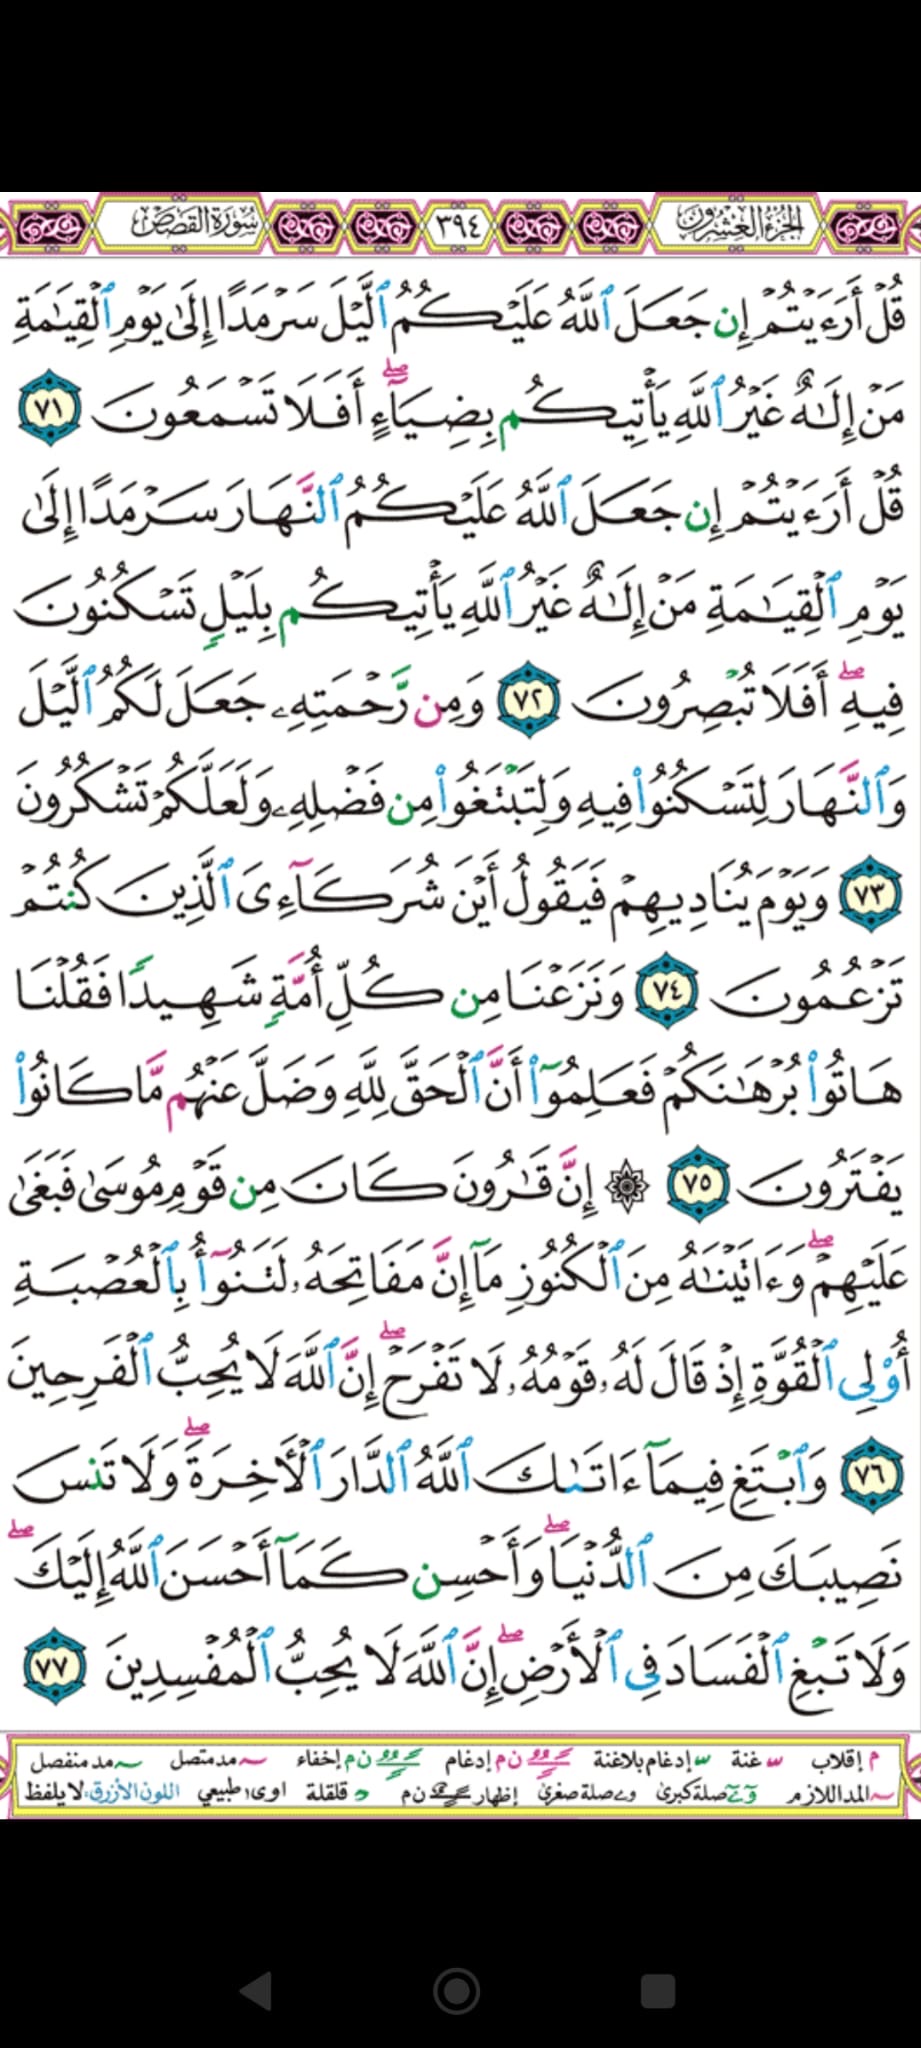 الجزء العشرون ٣٩٤ سورة القصص
قُلْ أَرَءَيْتُمْ إِن جَعَلَ ٱللَّهُ عَلَيْكُمُ ٱلَّيْلَ سَرْمَدًا إِلَىٰ يَوْمِ ٱلْقِيَٰمَةِ
مَنْ إِلَٰهٌ غَيْرُ ٱللَّهِ يَأْتِيكُم بِضِيَآءٍ ۖ أَفَلَا تَسْمَعُونَ ٧١
قُلْ أَرَءَيْتُمْ إِن جَعَلَ ٱللَّهُ عَلَيْكُمُ ٱلنَّهَارَ سَرْمَدًا إِلَىٰ
يَوْمِ ٱلْقِيَٰمَةِ مَنْ إِلَٰهٌ غَيْرُ ٱللَّهِ يَأْتِيكُم بِلَيْلٍ تَسْكُنُونَ
فِيهِ ۖ أَفَلَا تُبْصِرُونَ ٧٢ وَمِن رَّحْمَتِهِۦ جَعَلَ لَكُمُ ٱلَّيْلَ
وَٱلنَّهَارَ لِتَسْكُنُوا۟ فِيهِ وَلِتَبْتَغُوا۟ مِن فَضْلِهِۦ وَلَعَلَّكُمْ تَشْكُرُونَ
٧٣ وَيَوْمَ يُنَادِيهِمْ فَيَقُولُ أَيْنَ شُرَكَآءِىَ ٱلَّذِينَ كُنتُمْ
تَزْعُمُونَ ٧٤ وَنَزَعْنَا مِن كُلِّ أُمَّةٍ شَهِيدًا فَقُلْنَا
هَاتُوا۟ بُرْهَٰنَكُمْ فَعَلِمُوٓا۟ أَنَّ ٱلْحَقَّ لِلَّهِ وَضَلَّ عَنْهُم مَّا كَانُوا۟
يَفْتَرُونَ ٧٥ ۞ إِنَّ قَٰرُونَ كَانَ مِن قَوْمِ مُوسَىٰ فَبَغَىٰ
عَلَيْهِمْ ۖ وَءَاتَيْنَٰهُ مِنَ ٱلْكُنُوزِ مَآ إِنَّ مَفَاتِحَهُۥ لَتَنُوٓأُ بِٱلْعُصْبَةِ
أُو۟لِى ٱلْقُوَّةِ إِذْ قَالَ لَهُۥ قَوْمُهُۥ لَا تَفْرَحْ ۖ إِنَّ ٱللَّهَ لَا يُحِبُّ ٱلْفَرِحِينَ
٧٦ وَٱبْتَغِ فِيمَآ ءَاتَىٰكَ ٱللَّهُ ٱلدَّارَ ٱلْأَخِرَةَ ۖ وَلَا تَنسَ
نَصِيبَكَ مِنَ ٱلدُّنْيَا ۖ وَأَحْسِن كَمَآ أَحْسَنَ ٱللَّهُ إِلَيْكَ ۖ
وَلَا تَبْغِ ٱلْفَسَادَ فِى ٱلْأَرْضِ ۖ إِنَّ ٱللَّهَ لَا يُحِبُّ ٱلْمُفْسِدِينَ ٧٧
م إقلاب غنة إدغام بلاغنة ن م إدغام ن م إخفاء مد متصل مد منفصل
المد اللازم صلة كبرى و ے صلة صغرى إظهار ن م قلقلة اوى طبيعي اللون الأزرق: لا يلفظ